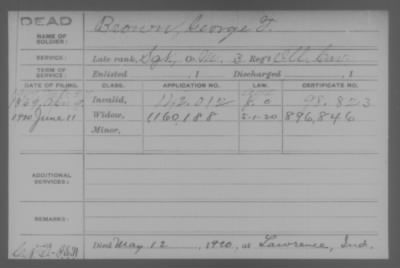 DEAD
NAME OF SOLDIER: Brown, George F.
SERVICE: Late rank, Sgt, Co. M, 3 Reg't Cav.
TERM OF SERVICE: Enlisted , 1 Discharged , 1
DATE OF FILING. CLASS. APPLICATION NO. LAW. CERTIFICATE NO.
1869 Invalid, 98.823
1920 June 11 Widow, 1160,188 5-1-20 896,846
Minor,
ADDITIONAL SERVICES:
REMARKS:
Died May 12, 1920, at Lawrence, Ind.